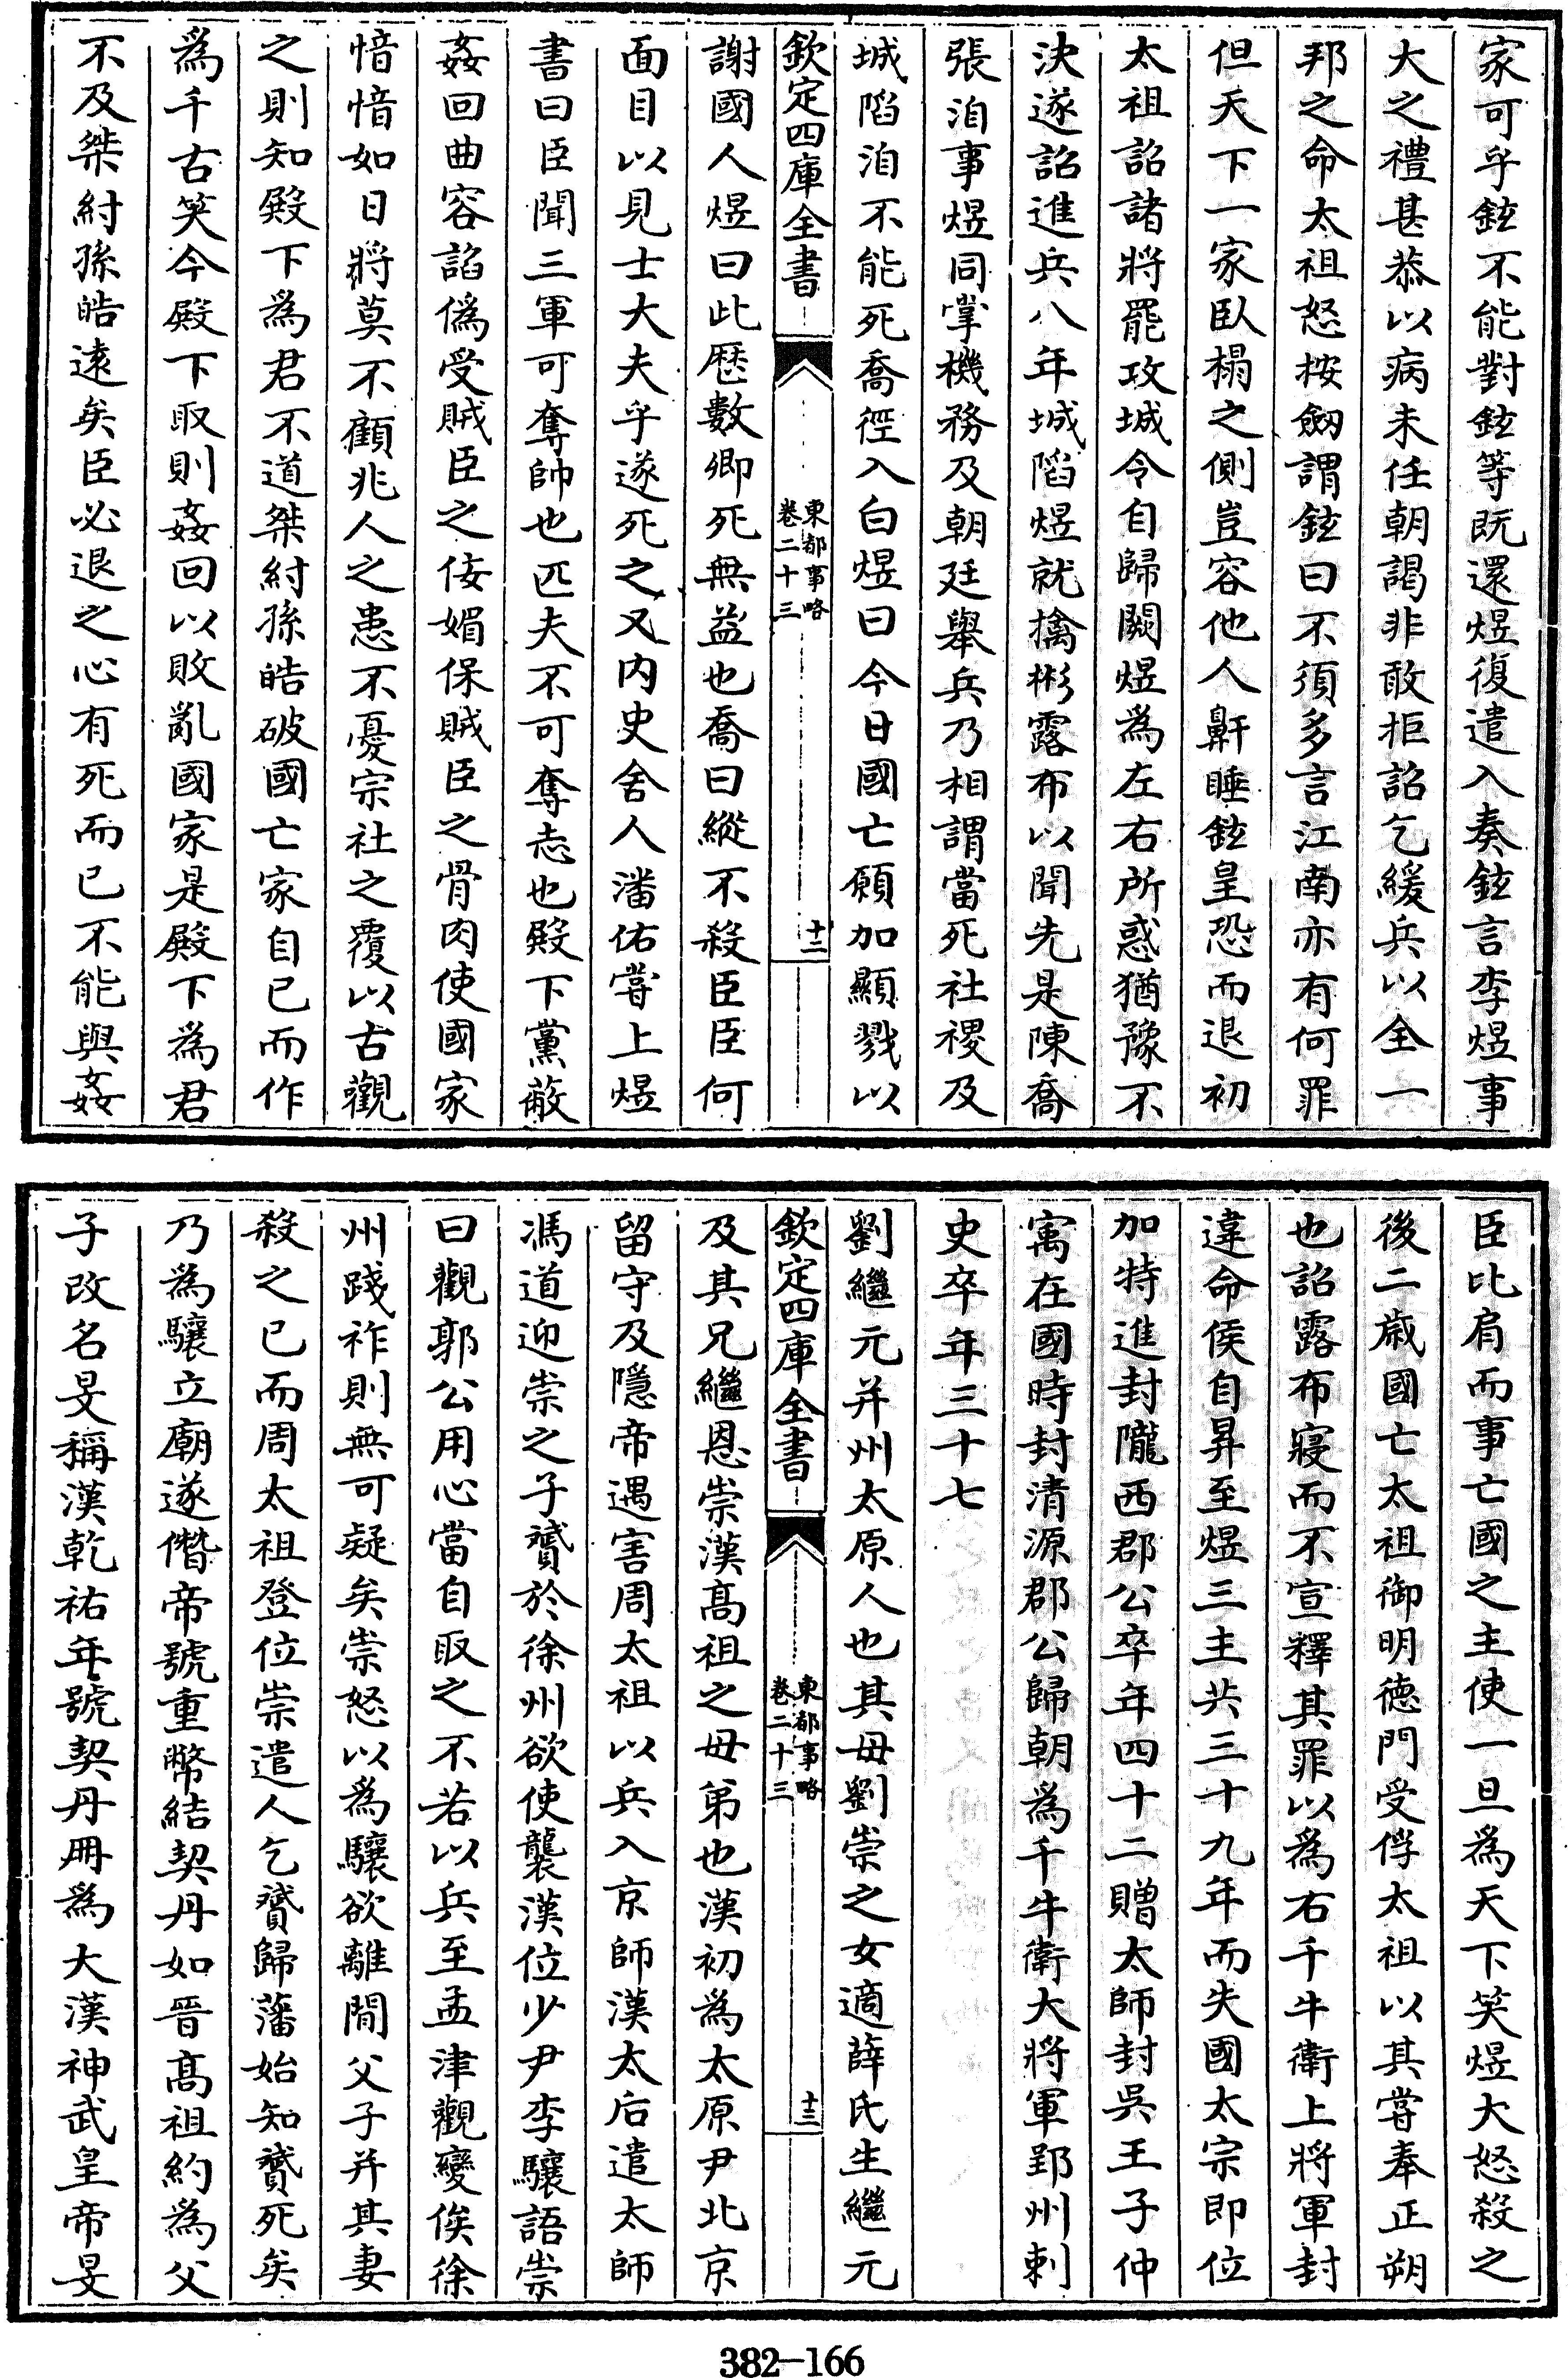 家可乎鉉不能對鉉等既還煜復遣入奏鉉言李煜事
大之禮甚恭以病未任朝謁非敢拒詔乞緩兵以全一
邦之命太祖怒按劔謂鉉曰不須多言江南亦有何罪
但天下一家臥榻之側豈容他人鼾睡鉉皇恐而退初
太祖詔諸將罷攻城令自歸闕煜為左右所惑猶豫不
決遂詔進兵八年城陷煜就擒彬露布以聞先是陳喬
張洎事煜同掌機務及朝廷舉兵乃相謂當死社稷及
城陷洎不能死喬徑入白煜曰今日國亡願加顯戮以
欽定四庫全書
東都事略
卷二十三
十二
謝國人煜曰此歷數卿死無益也喬曰縱不殺臣臣何
面目以見士大夫乎遂死之又内史舍人潘佑嘗上煜
書曰臣聞三軍可奪帥也匹夫不可奪志也殿下黨蔽
姦回曲容諂偽受賊臣之佞媚保賊臣之骨肉使國家
愔愔如日將莫不顧兆人之患不憂宗社之覆以古觀
之則知殿下為君不道桀紂孫皓破國亡家自已而作
為千古笑今殿下取則姦回以敗亂國家是殿下為君
不及桀紂孫皓遠矣臣必退之心有死而已不能與姦
臣比肩而事亡國之主使一旦為天下笑煜大怒殺之
後二歲國亡太祖御明德門受俘太祖以其嘗奉正朔
也詔露布寢而不宣釋其罪以為右千牛衛上將軍封
違命侯自昇至煜三主共三十九年而失國太宗即位
加特進封隴西郡公卒年四十二贈太師封吳王子仲
寓在國時封清源郡公歸朝為千牛衛大將軍郢州刺
史卒年三十七
劉繼元并州太原人也其母劉崇之女適薛氏生繼元
欽定四庫全書
東都事略
卷二十三
十三
及其兄繼恩崇漢高祖之母弟也漢初為太原尹北京
留守及隱帝遇害周太祖以兵入京師漢太后遣太師
馮道迎崇之子贇於徐州欲使襲漢位少尹李驤語崇
曰觀郭公用心當自取之不若以兵至孟津觀變俟徐
州踐祚則無可疑矣崇怒以為驤欲離間父子并其妻
殺之已而周太祖登位崇遣人乞贇歸藩始知贇死矣
乃為驤立廟遂僭帝號重幣結契丹如晉高祖約為父
子改名旻稱漢乾祐年號契丹冊為大漢神武皇帝旻
382-166